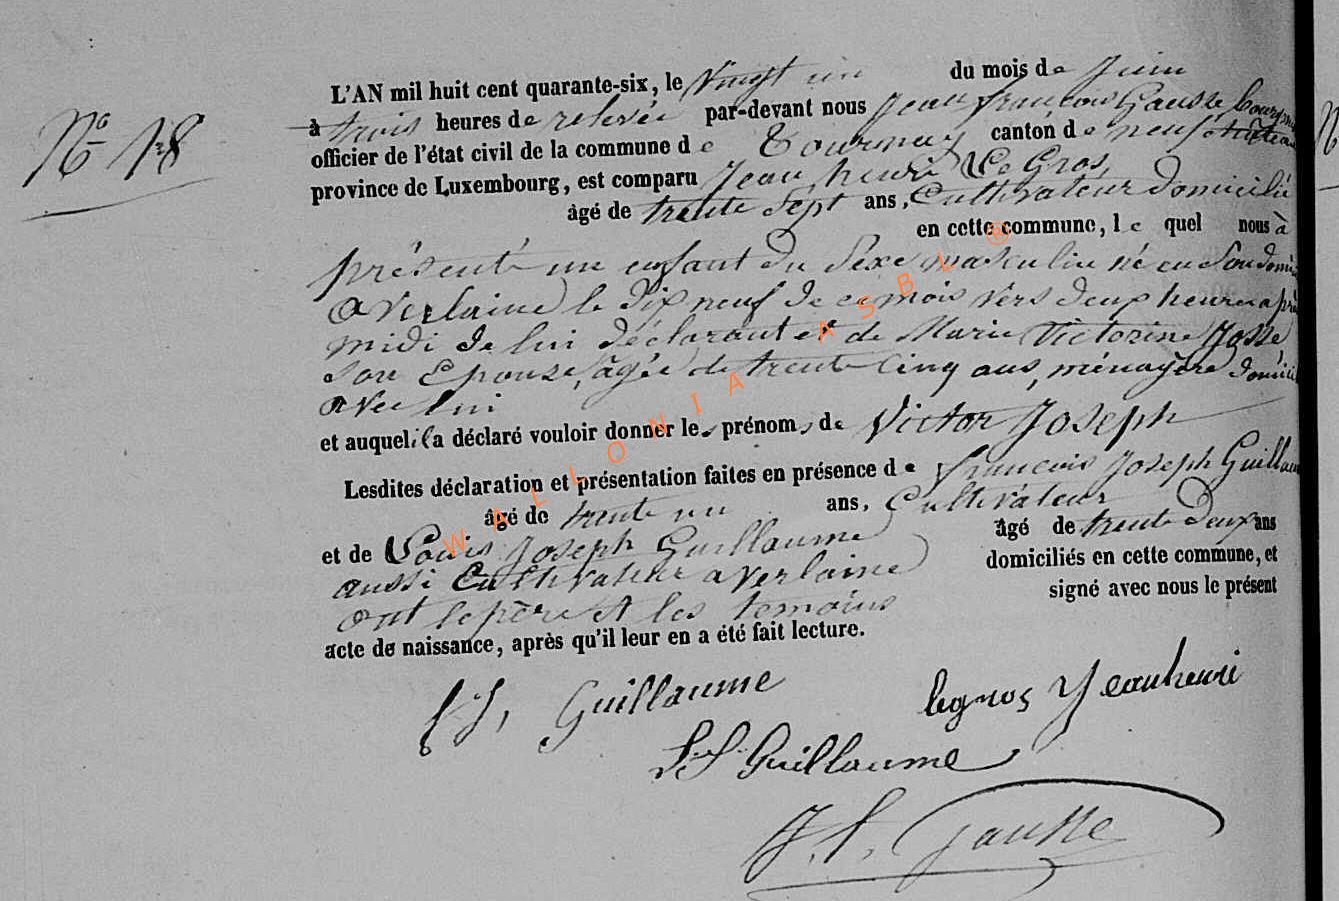 N° 18
L'AN mil huit cent quarante-six, le Vingt un du mois de Juin
à trois heures de relevée par-devant nous Jean françois Gausse, Bourgm
officier de l'état civil de la commune de Tournay canton de neufchateau
province de Luxembourg, est comparu Jean henri Le Gros,
âgé de trente Sept ans, Cultivateur domicilié
en cette commune, le quel nous à
présenté un enfant du Sexe masculin né en Son domi
a Verlaine le dix neuf de ce mois vers deux heures aprè
midi de lui déclarant et de Marie Victorine Josse
Son Epouse, âgée de trente Cinq ans, ménagère domicil
avec lui
et auquel il a déclaré vouloir donner les prénoms de Victor Joseph
Lesdites déclaration et présentation faites en présence de françois Joseph Guillaum
âgé de trente un ans, Cultivateur
et de Louis Joseph Guillaume âgé de trente deux ans
aussi Cultivateur a Verlaine domiciliés en cette commune, et
ont le père et les temoins signé avec nous le présent
acte de naissance, après qu'il leur en a été fait lecture.
f J, Guillaume
legros Jeanhenri
L J Guillaume
J. f. Gausse
WALLONIA ASBL ®